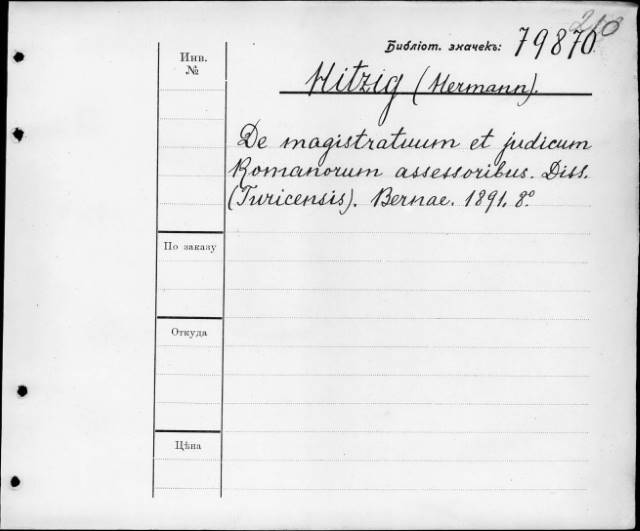 210
Библіот. значекъ: 79870
Инв.
№
Hitzig (Hermann).
De magistratuum et judicum
Romanorum assessoribus. Diss.
(Turicensis). Bernae. 1891. 8°
По заказу
Откуда
Цѣна